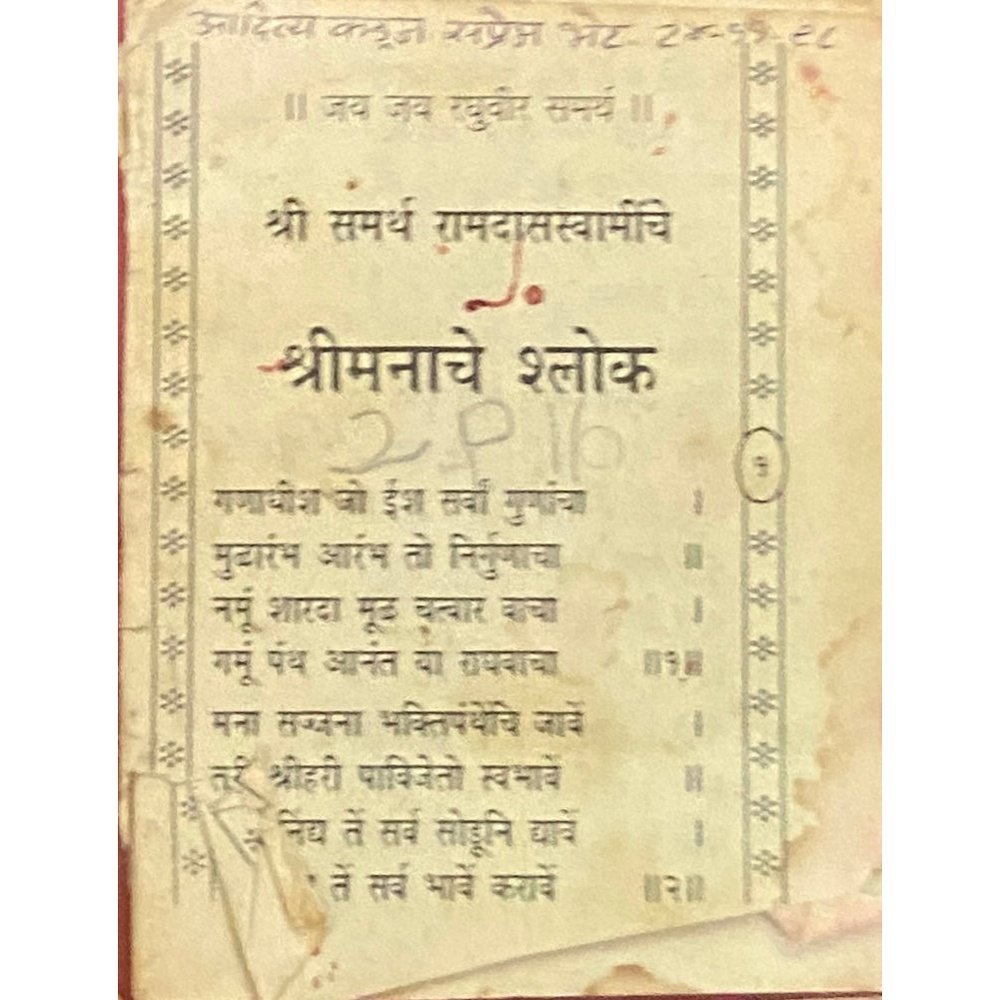 आदित्य सप्रेम भेट २४-११-९८
॥ जय जय रघुवीर समर्थ ॥
श्री समर्थ रामदासस्वामींचे
श्रीमनाचे श्लोक
१
गणाधीश जो ईश सर्वां गुणांचा ।
मुढारंभ आरंभ तो निर्गुणाचा ॥
नमूं शारदा मूढ चत्वार वाचा ।
गमूं पंथ आनंत या राघवाचा ॥१॥
मना सज्जना भक्तिपंथेंचि जावें ।
तरी श्रीहरी पाविजेतो स्वभावें ॥
निंद्य तें सर्व सोडूनि द्यावें ।
तें सर्व भावें करावें ॥२॥